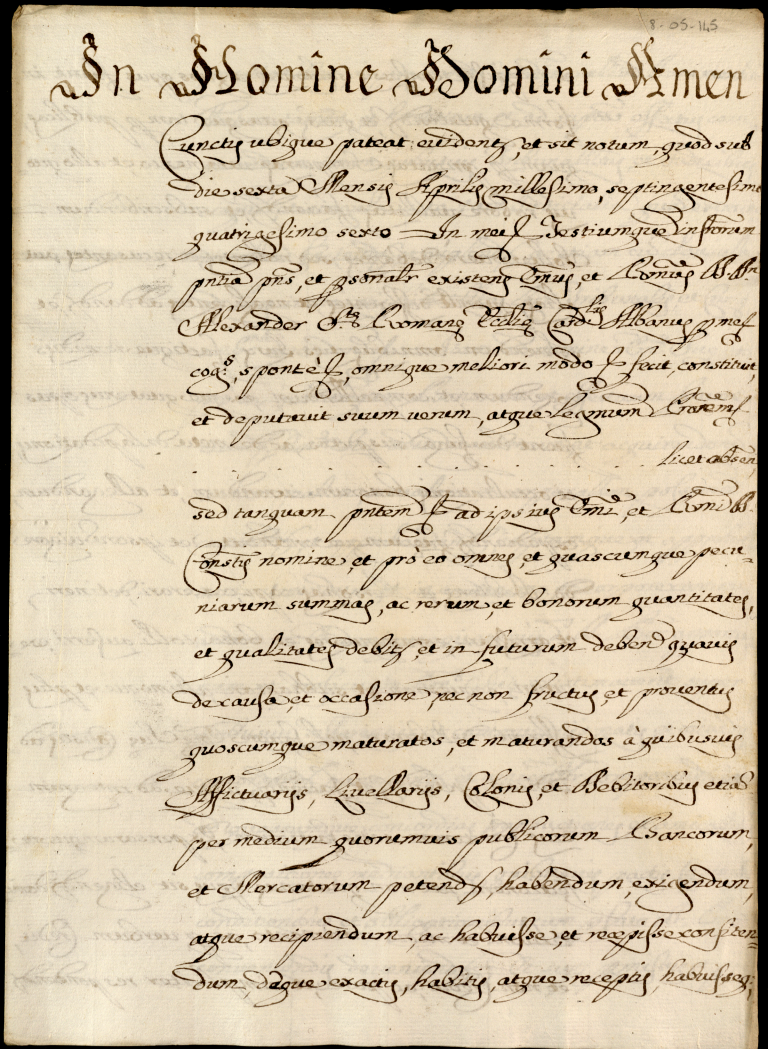 8-05-145
In Nomine Domini Amen
Cunctis ubique pateat evident, et sit notum, quod sub
die sexta Mensis Aprilis millesimo, septingentesimo
quatrigesimo sexto In mei Testiumque infrōrum
pntiā pns, et psonalr existens Emus, et Rmus D. Dn
Alexander S. Romane Ecclie Card Albanus p me
cog:s, sponte, omnique meliori modo fecit, constituit,
et deputavit suum verum, atque legmum Procrem
. . . . . . . . . . licet absen
sed tanquam pntem ad ipsius Emi, et Rmi D.
Constis nomine, et pro eo omnes, et quascunque pecu-
niarum summas, ac rerum, et bonorum quantitates,
et qualitates debit, et in futurum deben quavis
de causa, et occasione, nec non fructus, et proventus
quoscumque maturatos, et maturandos à quibusvis
Affictuarijs, Livellarijs, Colonis, et Debitoribus etiā
per medium quorumvis publicorum Bancorum,
et Mercatorum petend, habendum, exigendum,
atque recipiendum, ac habuisse, et recepisse confiten-
dum, deque exactis, habitis, atque receptis, habuisseq: